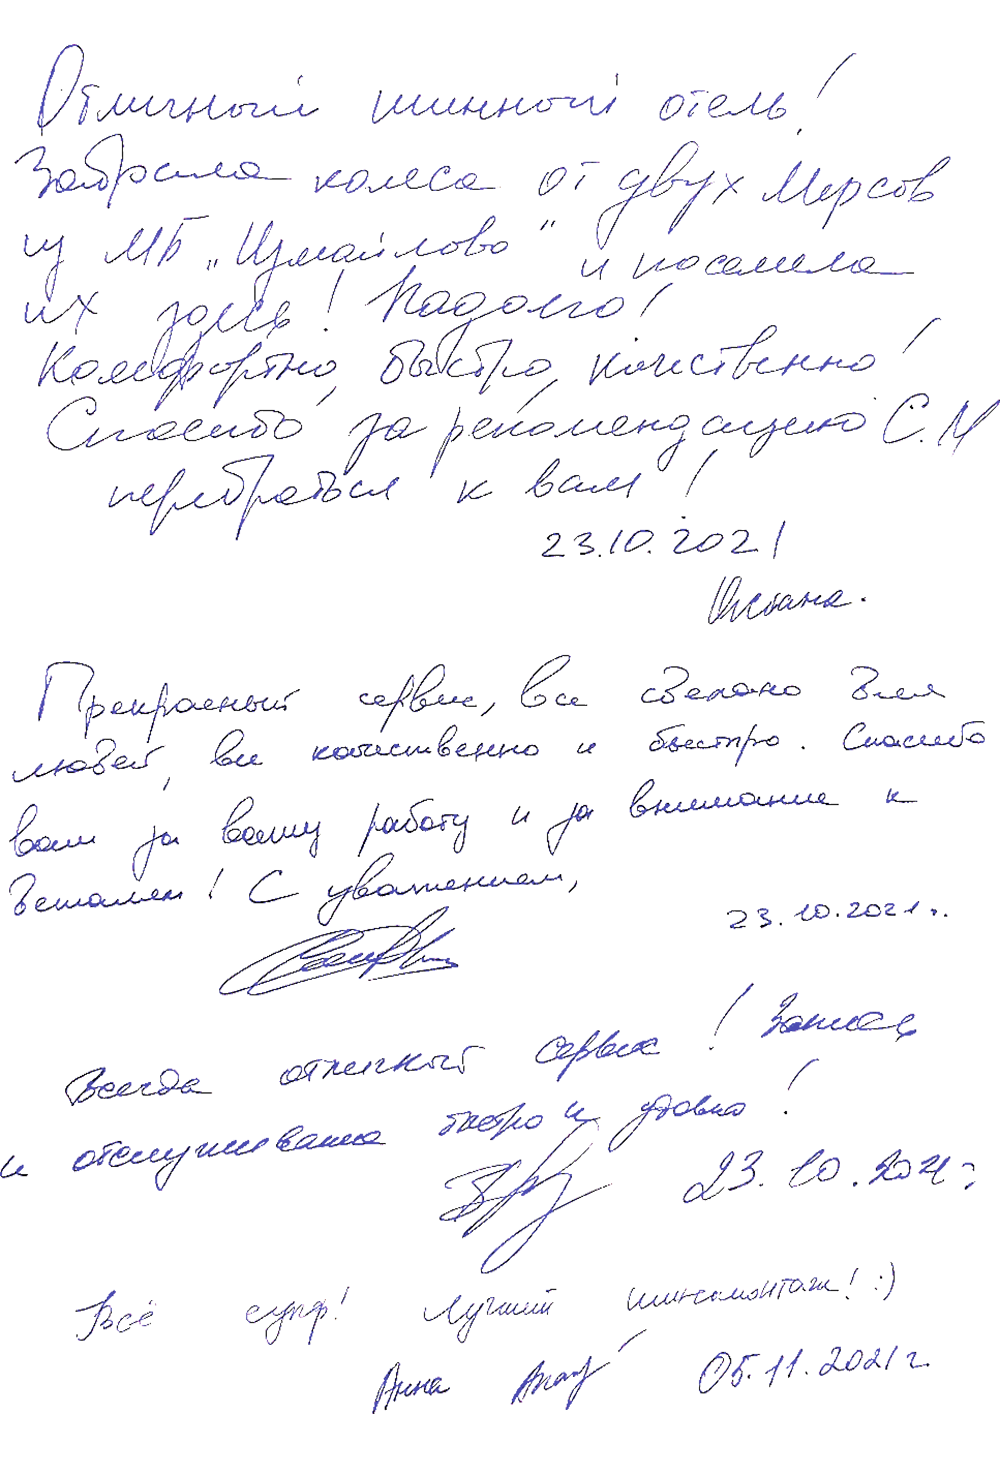 Отличный шинный отель!
Забрала колеса от двух Мерсов
из МБ "Измайлово" и поселила
их здесь! Надолго!
Комфортно, быстро, качественно!
Спасибо за рекомендацию С.М
перебраться к вам!
23.10.2021
Оксана.
Прекрасный сервис, все сделано для
людей, все качественно и быстро. Спасибо
вам за вашу работу и за внимание к
деталям! С уважением,
23.10.2021г.
Всегда отличный сервис! Запись
и обслуживание быстро и удобно!
23.10.2021г.
Всё супер! Лучший шиномонтаж! :)
Анна 05.11.2021г.